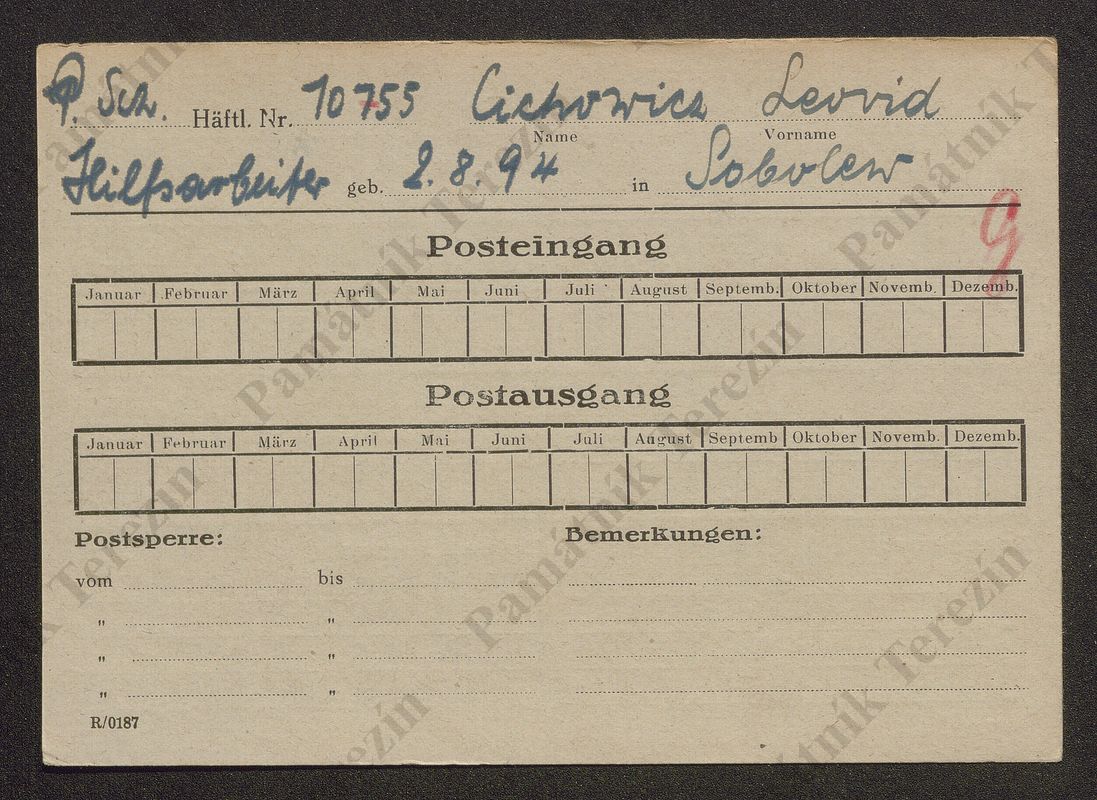 P. Sch. Häftl. Nr. 10755 Cichowicz Leonid
Name Vorname
Hilfsarbeiter geb. 2.8.94 in Sobolew
Posteingang
Januar Februar März April Mai Juni Juli August Septemb. Oktober Novemb. Dezemb.
Postausgang
Januar Februar März April Mai Juni Juli August Septemb Oktober Novemb. Dezemb.
Postsperre: Bemerkungen:
vom bis
" "
" "
" "
R/0187
Památník Terezín